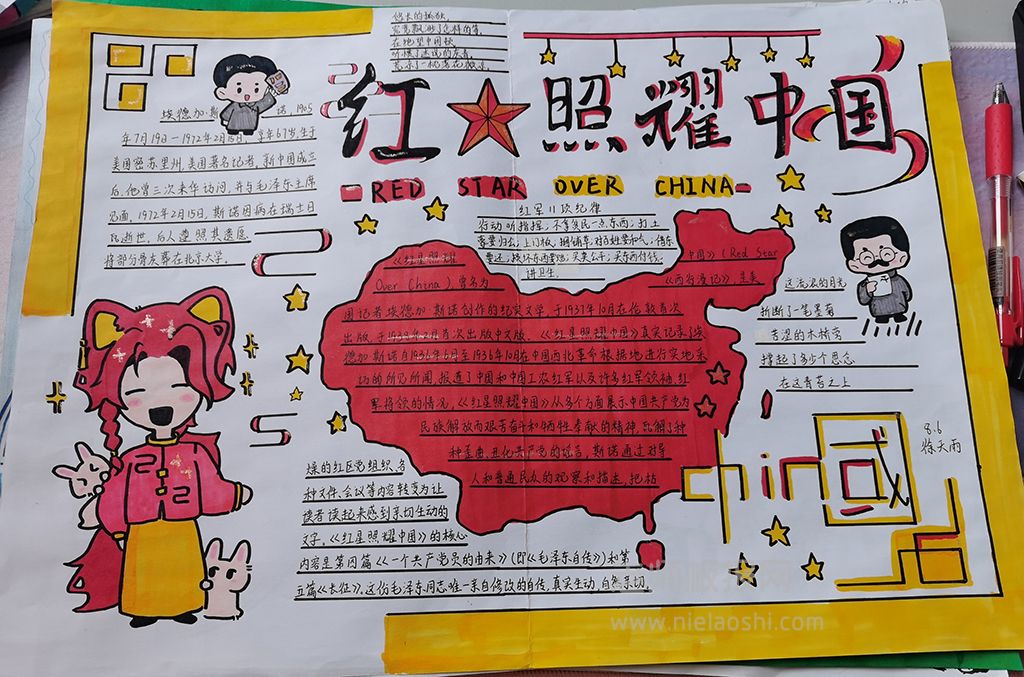 悠长的孤寂,
在地望中国秋
红★照耀中国
RED STAR OVER CHINA
埃德加·斯诺, 1905
年7月19日—1972年2月15日, 享年67岁,生于
美国密苏里州,美国著名记者, 新中国成立
后,他曾三次来华访问, 并与毛泽东主席
见面, 1972年2月15日, 斯诺因病在瑞士日
瓦逝世, 后人遵照其遗愿
将部分骨灰葬在北京大学。
红军11项纪律
行动听指挥, 不拿贫民一点东西, 打土
豪要归公; 上门板, 捆铺草, 对老姓要和气; 借东
要还; 损坏东西要赔; 买卖公平; 买东西付钱,
讲卫生。
《红星照耀中国》(Red Star
Over China)曾名为《西行漫记》是美
国记者埃德加·斯诺创作的纪实文学, 于1937年10月在伦敦首次
出版, 于1938年2月首次出版中文版. 《红星照耀中国》真实记录了埃
德加·斯诺自1936年6月至1936年10月在中国西北革命根据地进行实地采
访的所见所闻, 报道了中国和中国工农红军以及许多红军领袖,红
军将领的情况, 《红星照耀中国》从多个方面展示中国共产党为
民族解放而艰苦奋斗和牺牲奉献的精神, 瓦解了种
种歪曲、丑化共产党的谣言, 斯诺通过对导
人和普通民众的观察和描述, 把枯
燥的红区党组织、各
种文件、会议等内容转变为让
读者读起来感到亲切生动的
文字, 《红星照耀中国》的核心
内容是第四篇《一个共产党员的由来》(即《毛泽东自传》)和第
五篇《长征》, 这份毛泽东同志唯一亲自修改的自传, 真实生动, 自然亲切.
这流浪的月光
折断了一笔墨菊
苦涩的木桥旁
撑起了多少个思念
在这青苔之上
china
国
8.6
徐天雨
www.nielaoshi.com